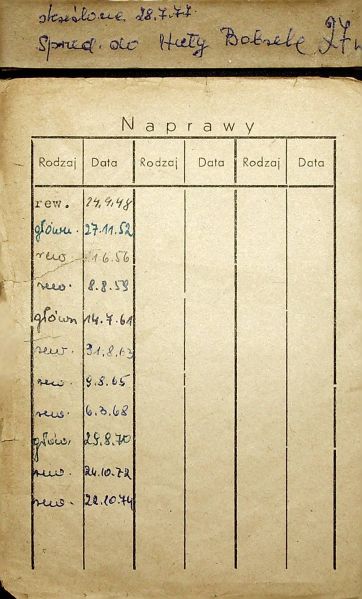 skreślone 28.7.77.
Spred. do Huty Bobrek
Naprawy
Rodzaj Data Rodzaj Data Rodzaj Data
rew. 24.9.48
główn. 27.11.52
rew. 1 6.56
rew. 8.8.59
główn 14.7.61
rew. 31.8.63
rew. 9.8.65
rew. 6.3.68
główn. 29.8.70
rew. 24.10.72
rew. 22.10.74